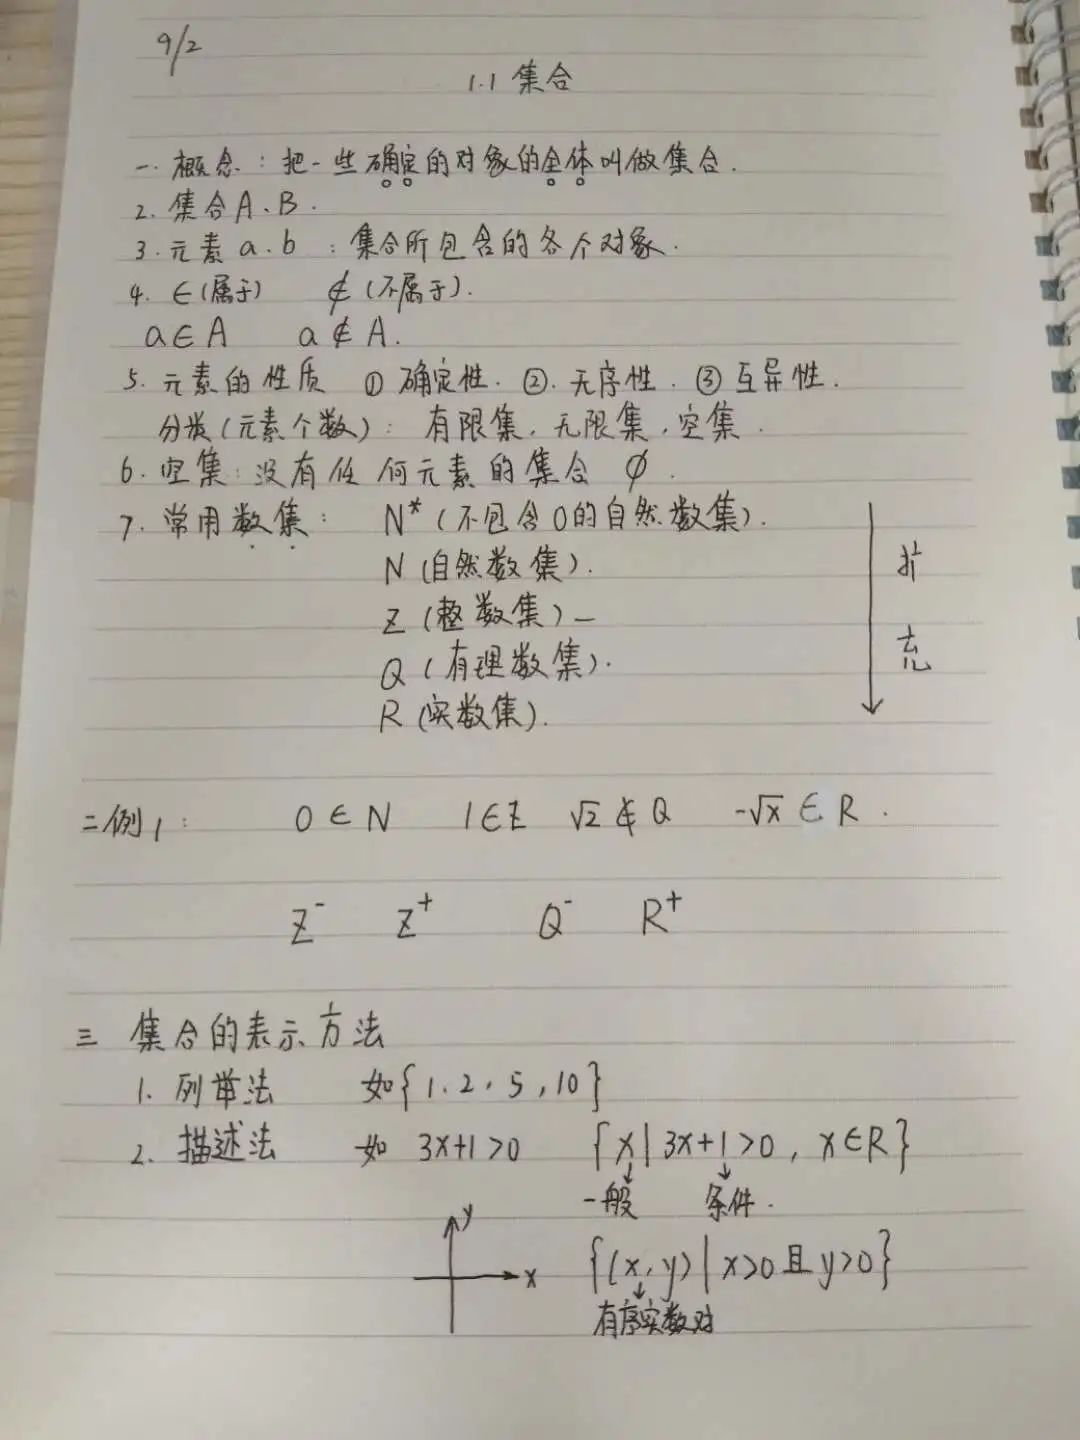 9/2
1.1 集合
一. 概念：把一些确定的对象的全体叫做集合.
2. 集合A、B.
3. 元素 a.b ：集合所包含的各个对象.
4. ∈(属于) ∉(不属于).
a∈A a∉A.
5. 元素的性质 ① 确定性. ②. 无序性. ③ 互异性.
分类(元素个数)：有限集，无限集，空集.
6. 空集：没有任何元素的集合 ∅.
7. 常用数集： N*（不包含0的自然数集).
N (自然数集).
Z (整数集)
Q (有理数集).
R (实数集).
扩充
二 例1： 0∈N 1∈Z √2∉Q -√x∈R.
Z⁻ Z⁺ Q⁻ R⁺
三 集合的表示方法
1. 列举法 如{1.2,5,10}
2. 描述法 如 3x+1>0 {x|3x+1>0, x∈R}
一般 条件.
y
x {(x,y)|x>0且y>0}
有序实数对